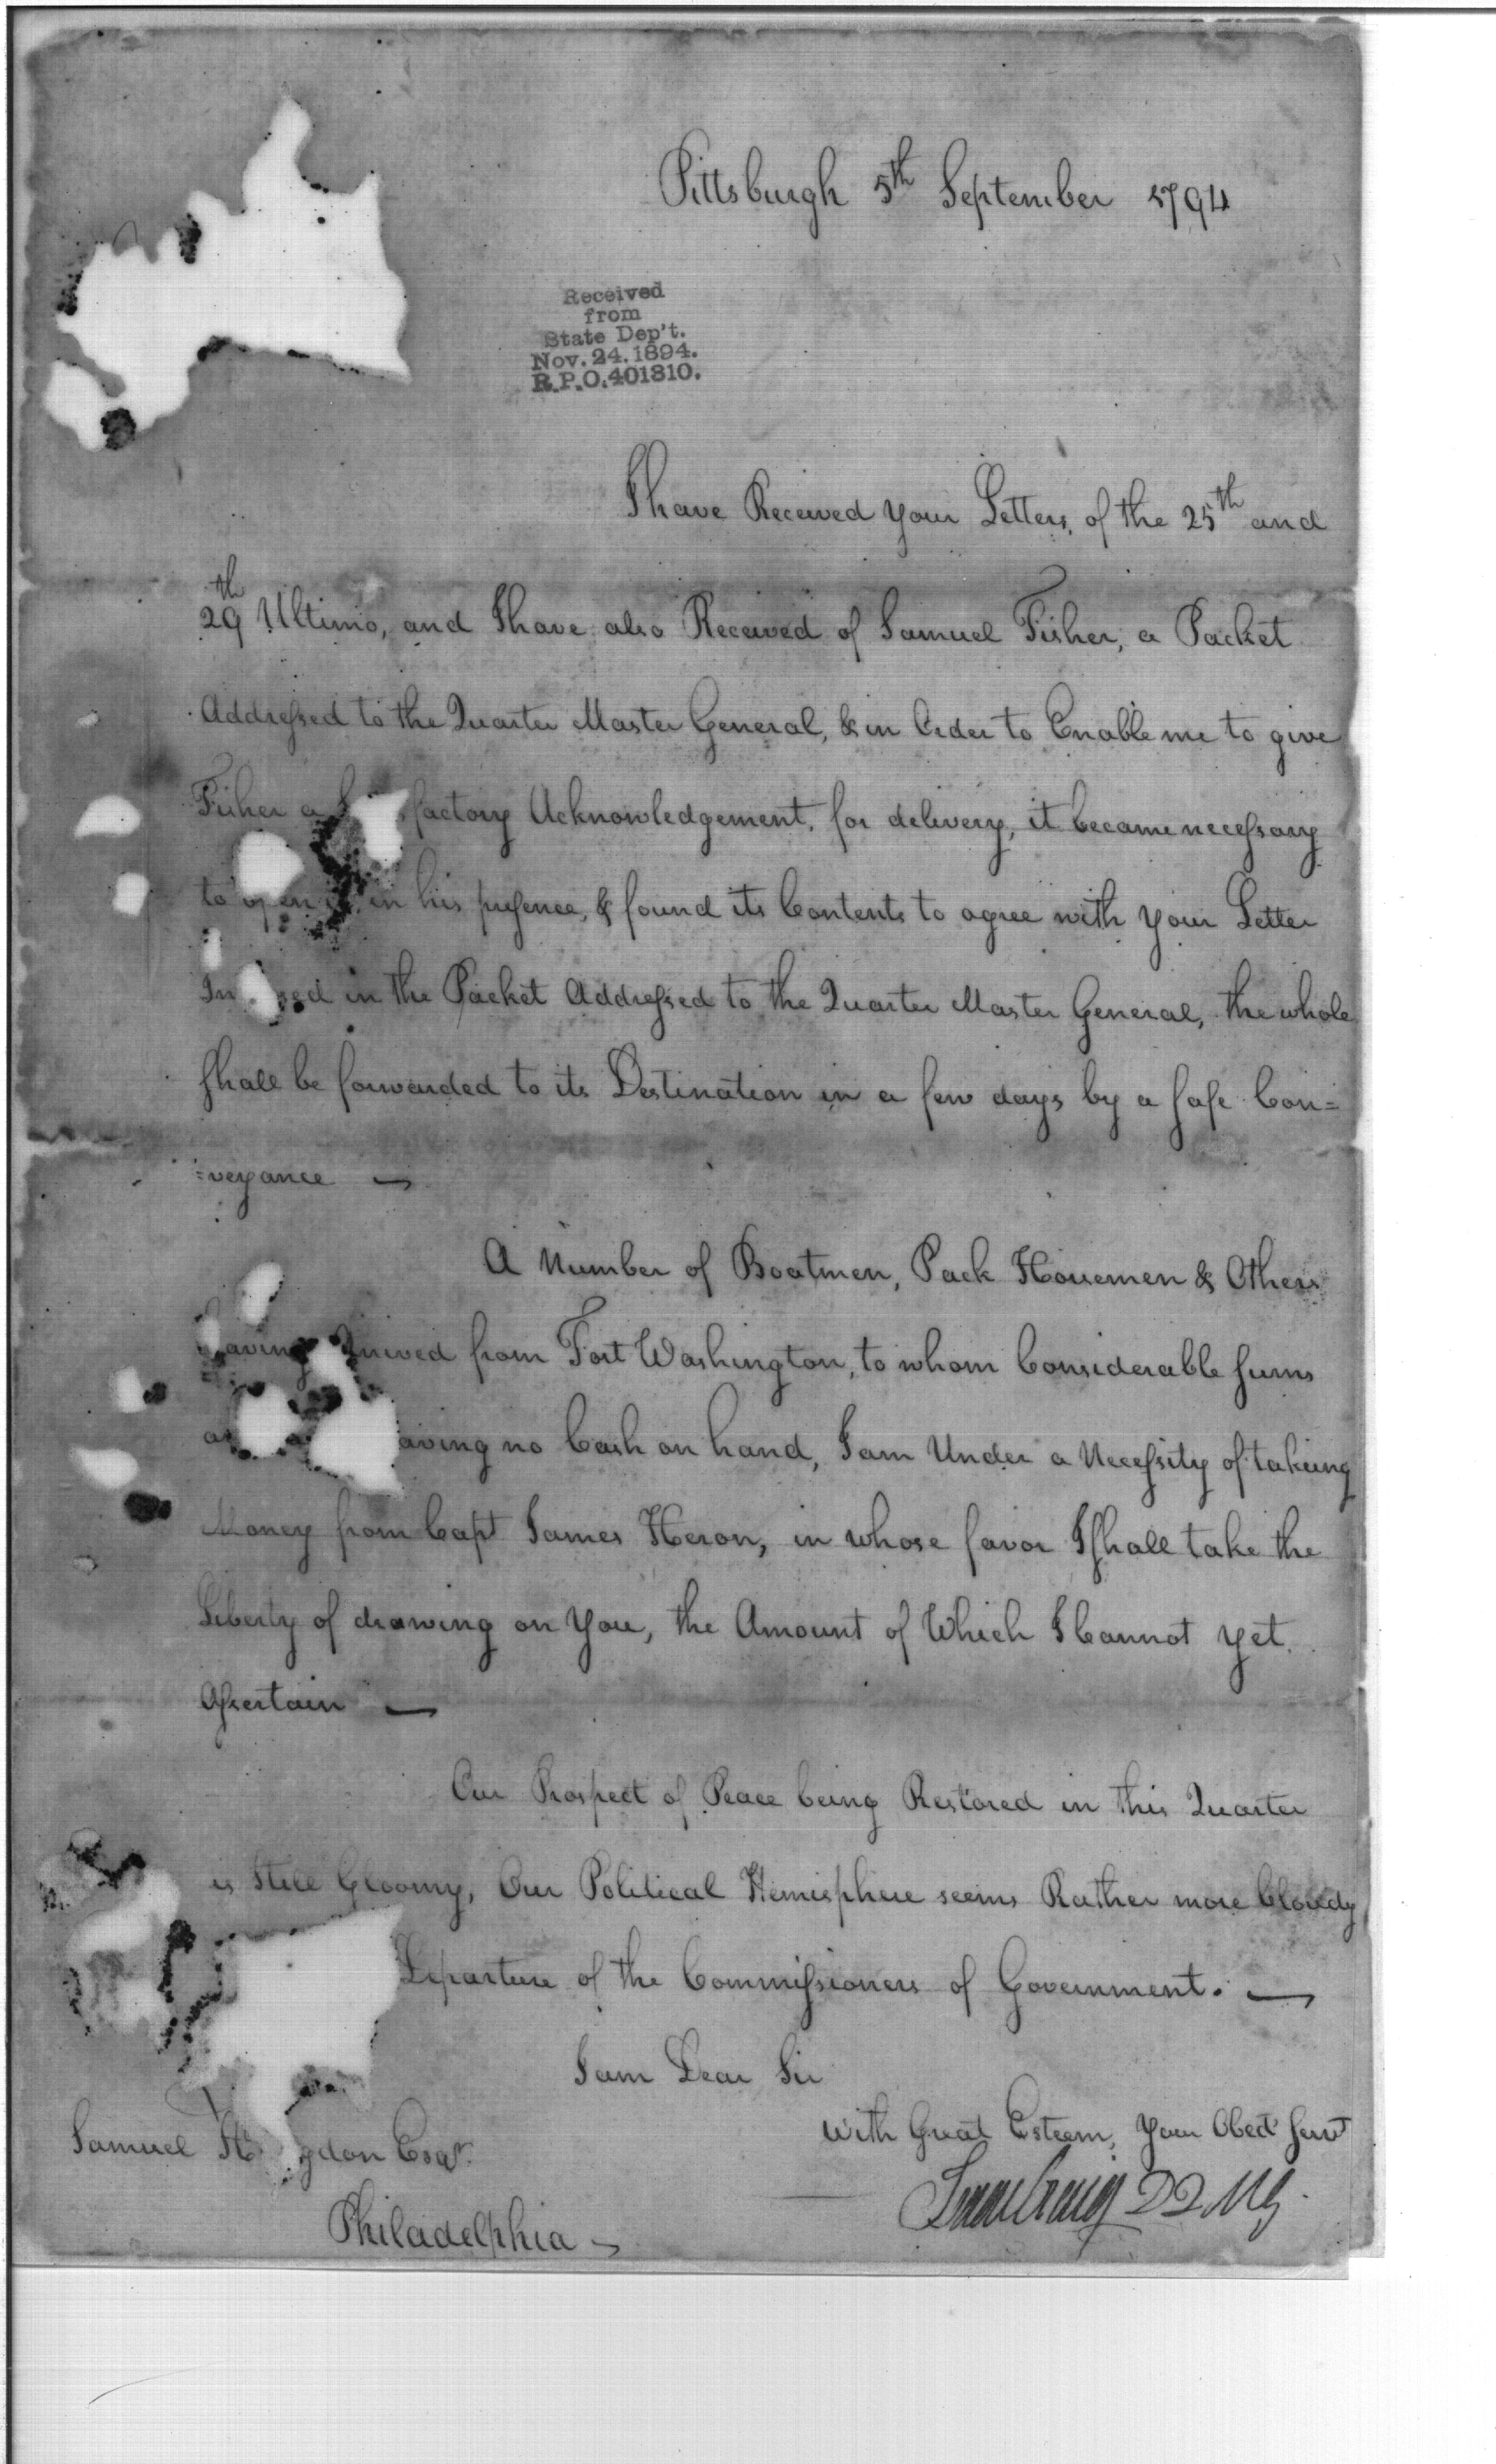 Pittsburgh 5th September 1794
Received
from
State Dep't.
Nov. 24. 1894.
R.P.O. 401810.
I have Received your Letters, of the 25th and
29th Ultimo, and I have also Received of Samuel Fisher, a Packet
Addressed to the Quarter Master General, & in Order to Enable me to give
Fisher a factory Acknowledgement, for delivery, it became necessary
to open it in his presence, & found its Contents to agree with your Letter
in the Packet Addressed to the Quarter Master General, the whole
shall be forwarded to its Destination in a few days by a safe Con=
=veyance —
A Number of Boatmen, Pack Horsemen & Others
having from Fort Washington, to whom Considerable sums
aving no Cash on hand, I am Under a Necessity of takeing
Money from Capt James Heron, in whose favor I shall take the
Liberty of drawing on You, the Amount of Which I Cannot yet
Assertain —
Our Prospect of Peace being Restored in this Quarter
is Still Gloomy, Our Political Hemisphere seems Rather more Cloudy
Departure of the Commissioners of Government. —
I am Dear Sir
With Great Esteem, Your Obedt Servt
Samuel H gdon Esqr.
Isaac Craig DQMG
Philadelphia —